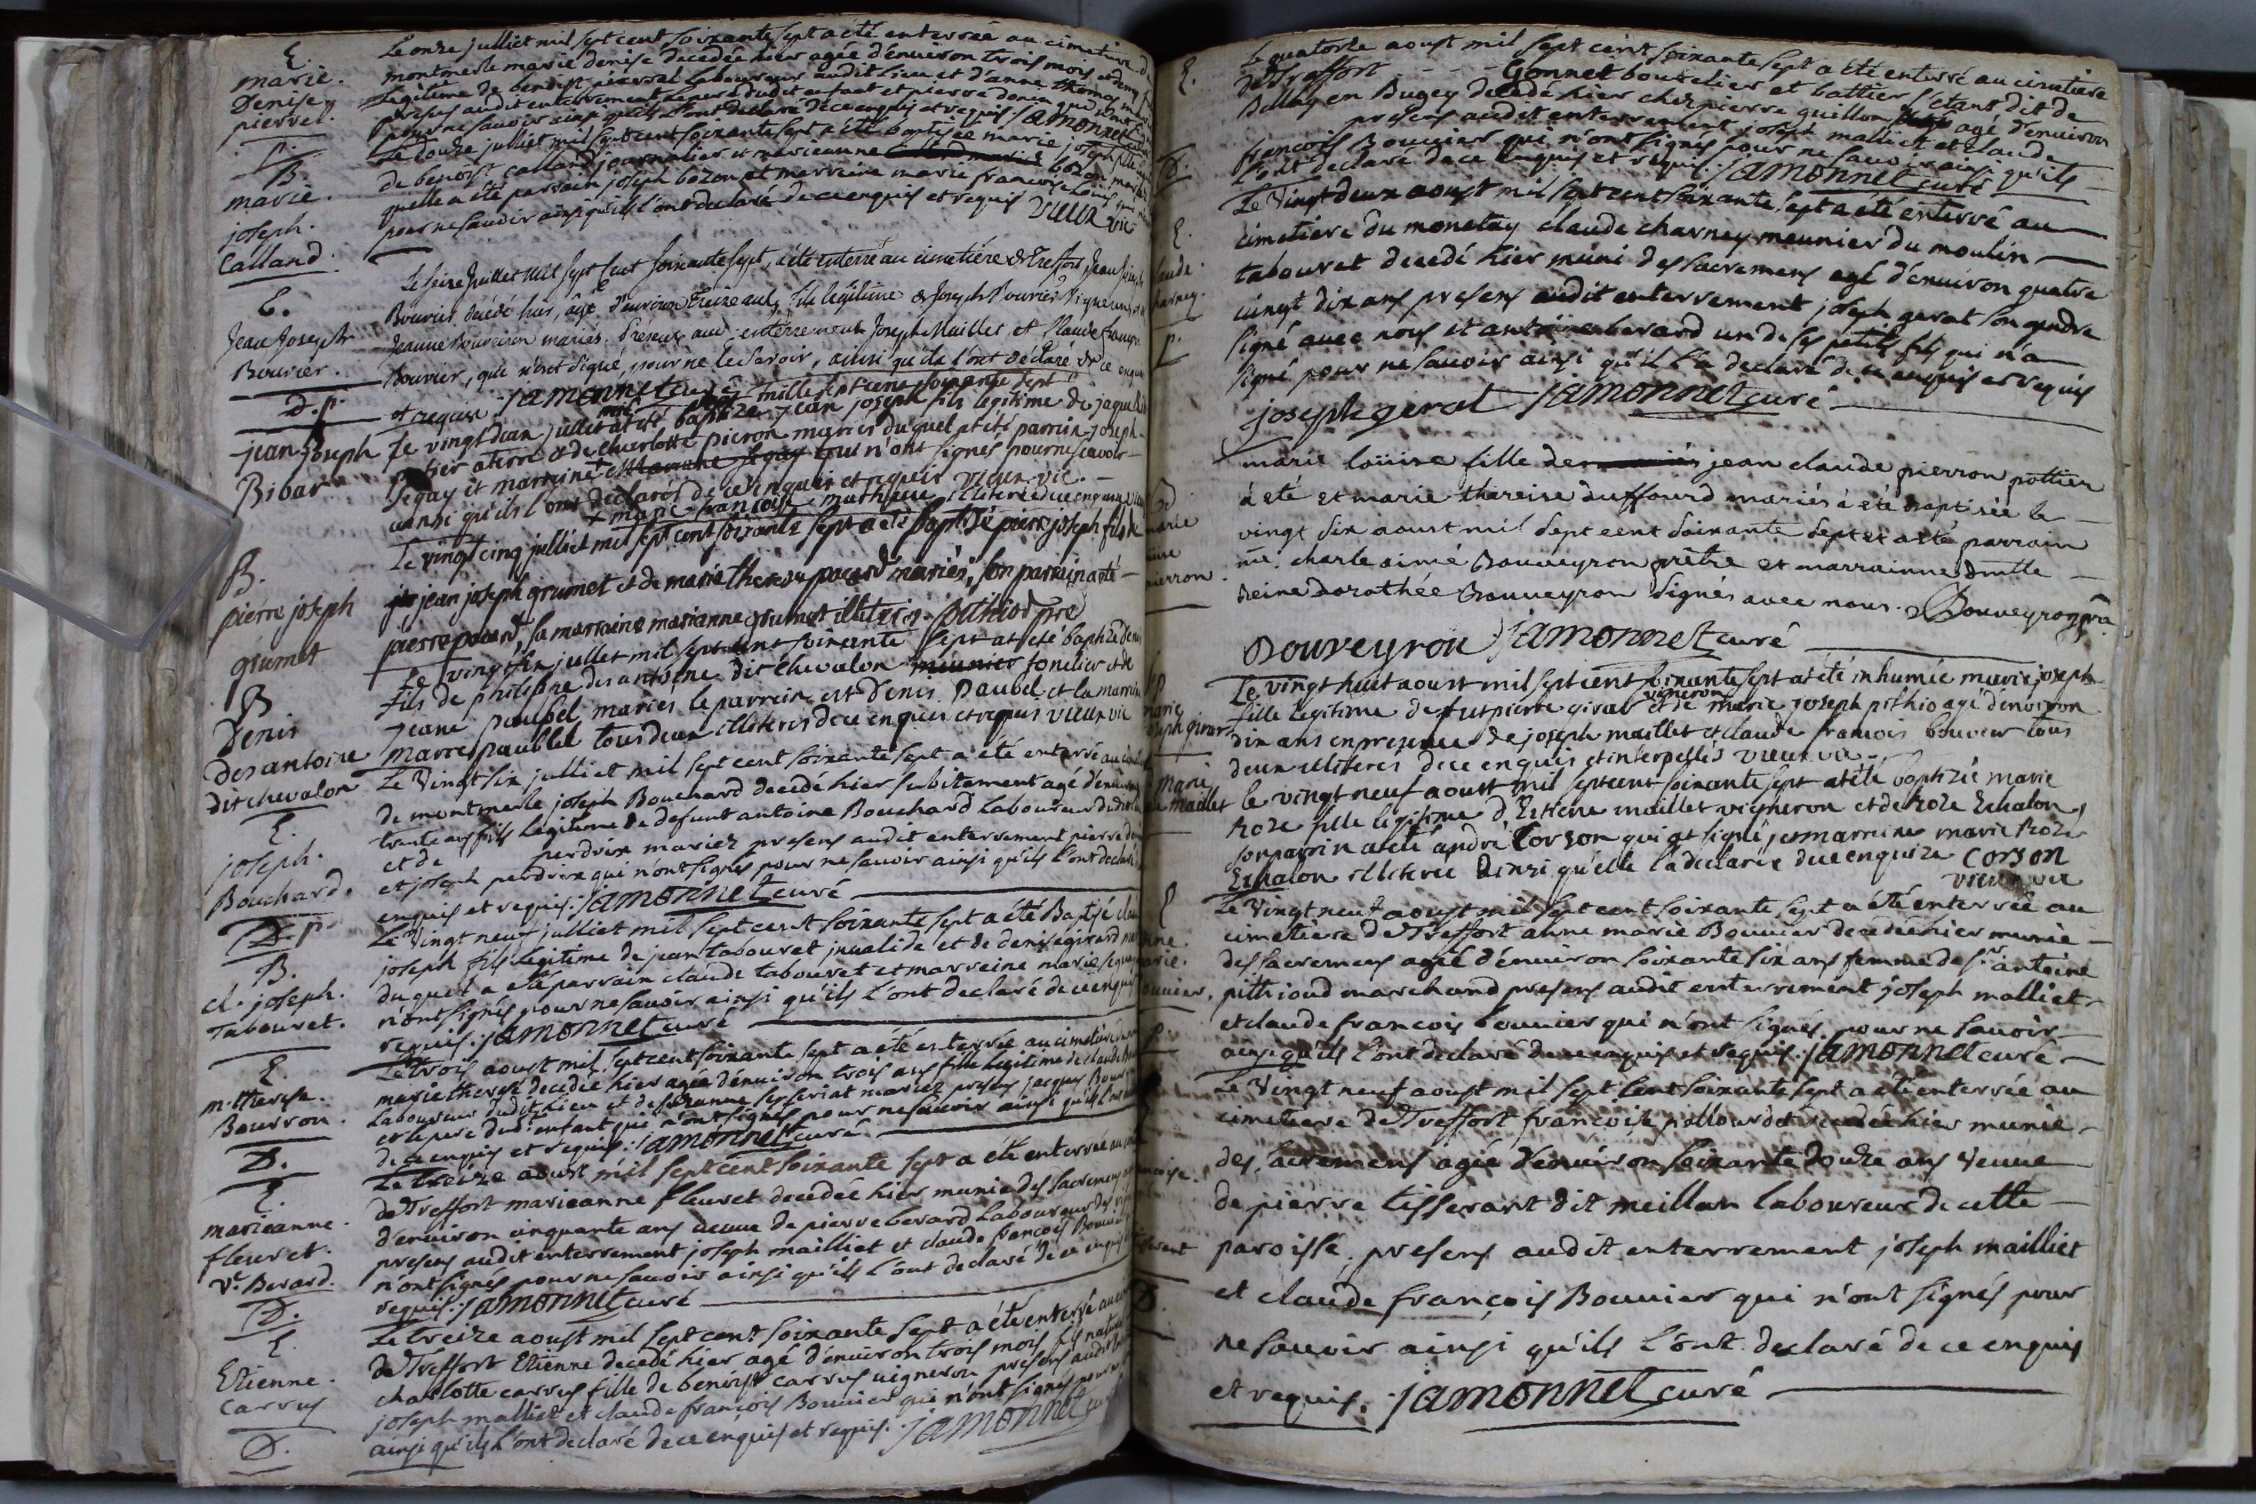 E.
marie.
Denise
pierrel.
Le onze julliet mil sept cent soixante sept a été enterrée au cimetiere de
montmerle marie denise decedée hier agée d'environ trois mois et demy
Legitime de benoist pierrel laboureur audit lieu et d'anne thomas
presens audit enterrement le pere dudit enfant et pierre donin que
pour ne savoir ainsi qu'ils l'ont declaré de ce enquis et requis jamonnet
P.
B.
marie.
joseph.
Calland
Le douze julliet mil sept cent soixante sept a été baptisée marie joseph fille
de benoist calland journalier et marieanne bozon
quelle a été parrain joseph bozon et marreine marie francoise
pour ne savoir ainsi qu'ils l'ont declaré de ce enquis et requis vieux vic
E.
Jean Joseph
Bouvier.
Le seize Juillet mil sept cent soixante sept, a été enterré au cimetiére de Treffort, Jean Joseph
Bouvier décédé hier, âgé d'environ treize ans, fils légitime de Joseph Bouvier vigneron, et
Jeanne mariés. Présens aud. enterrement Joseph Maillet et Claude françois
Bouvier, qui n'ont signé, pour ne le savoir, ainsi qu'ils l'ont déclaré de ce enquis
et requis jamonnet curé
D. p.
jean joseph
Bibar
Le vingt deux juillet mille sept cens soixante sept
at eté baptizé jean joseph fils legitime de jaque
potier aterre et de charlotte pieron mariés duquel at été parrin joseph
Segay et marraine qui n'ont signés pour ne scavoir
ainsi qu'ils l'ont declarés de ce enquis et requis vieux vic.
+ marie francoise mathieu illiterée de ce enquise
B.
pierre joseph
grumet
Le vingt cinq julliet mil sept cent soixante sept a été baptisé pierre joseph fils de
jean joseph grumet et de marie therese pacard mariés, son parrain a été
pierre pacard, sa marraine marianne grumet illiterés. pithiod pre
B
Denis
Desantoine
dit chevalon
Le vingt six juillet mil sept cent soixante sept at eté baptizé denis
fils de philippe desantoine dit chevalon et de
jeane paubel mariés le parrein est denis Paubel et la marraine
marre paubel tous deux illiterés de ce enquis et requis vieux vic
E.
joseph.
Bouchard.
Le Vingt six julliet mil sept cent soixante sept a été enterré au
de montmerle joseph Bouchard decedé hier subitement agé d'environ
trente ans fils legitime de defunt antoine Bouchard Laboureur dudit
et de perdrix mariez presens audit enterrement pierre
et joseph perdrix qui n'ont signés pour ne savoir ainsi qu'ils l'ont declaré
enquis et requis. jamonnet curé
D. p.
B.
cl. joseph.
Tabouret.
Le Vingt neuf julliet mil sept cent soixante sept a été Baptisé
joseph fils legitime de jean tabouret jnvalide et de denise girard
duquel a été parrain claude tabouret et marreine marie
n'ont signés pour ne savoir ainsi qu'ils l'ont declaré de ce enquis
requis. jamonnet curé
E.
m. therese.
Bourron.
Le trois aoust mil sept cent soixante sept a été enterrée au cimetiere
marie therese decedée hier agée d'environ trois ans fille legitime de claude
Laboureur dudit lieu et de suzanne mariez presens jacques
et le pere dud. enfant qui n'ont signés pour ne savoir ainsi qu'ils l'ont
de ce enquis et requis. jamonnet curé
D.
E.
marieanne.
fleuret.
Ve. Berard.
Le treize aoust mil sept cent soixante sept a été enterrée au
de Treffort marieanne fleuret decedée hier munie des sacremens
d'environ cinquante ans veuve de pierre berard Laboureur
presens audit enterrement joseph mailliet et claude françois Bouvier
n'ont signés pour ne savoir ainsi qu'ils l'ont declaré de ce enquis
requis. jamonnet curé
D.
E.
Etienne.
carrus
Le treize aoust mil sept cent soixante sept a été enterré au
de Treffort Etienne decedé hier agé d'environ trois mois fils naturel
charlotte carrus fille de benoist carrus vigneron presens audit
joseph malliet et claude françois Bouvier qui n'ont signés pour
ainsi qu'ils l'ont declaré de ce enquis et requis. jamonnet
D.
E.
Le quatorze aoust mil sept cent soixante sept a été enterré au cimetiere
de Treffort - - - Gonnet bourelier et battier s'etant dit de
Bellay en Bugey decedé hier chez pierre guillon agé d'environ
presens audit enterrement joseph malliet et claude
françois Bouvier qui n'ont signés pour ne savoir ainsi qu'ils
l'ont declaré de ce enquis et requis. jamonnet curé
D.
E.
Le Vingt deux aoust mil sept cent soixante sept a été enterré au
cimetiere du monetay claude charney meunier du moulin
tabouret decedé hier muni des sacremens agé d'environ quatre
vingt dix ans presens audit enterrement joseph gerat son gendre
signé avec nous et antoine berard un de ses petits fils qui n'a
signé pour ne savoir ainsi qu'il l'a declaré de ce enquis et requis
joseph gerat jamonnet curé
p.
marie loüise fille de jean claude pierron pottier
à eté et marie thereise duffourd mariés à eté baptisée le
vingt six aoust mil sept cent soixante sept et a été parrain
mre. charle aimé Bouveyron prêtre et marrainne dmlle
Reine dorothée Bouveyron Signés avec nous. Bouveyron
Bouveyron jamonnet curé
Le vingt huit aoust mil sept cent soixante sept at eté inhumée marie joseph
fille legitime de fut pierre girar vigneron et de marie joseph pithio agé d'environ
dix ans en presence de joseph maillet et claude francois bouvier tous
deux illiterés de ce enquis et interpellés vieux vic.
marie
maillet
le vingt neuf aoust mil sept cent soixante sept at eté baptizée marie
Roze fille legitime d'Estiene maillet vigneron et de Roze Echalon,
son parrin a été andré Corson qui at signé, sa marraine marie Roze
Echalon illiterée Ainsi qu'elle l'a declarée de ce enquize Corson
vieux vic
E
Le Vingt neuf aoust mil sept cent soixante sept a été enterrée au
cimetiere de Treffort anne marie Bouvier decedée hier munie
des sacremens agée d'environ soixante six ans femme de sr. antoine
pithioud marchand presens audit enterrement joseph malliet
et claude françois bouvier qui n'ont signés pour ne savoir
ainsi qu'ils l'ont declaré de ce enquis et requis. jamonnet curé
Le Vingt neuf aoust mil sept cent soixante sept a été enterrée au
cimetiere de Treffort françoise pallourdet decedée hier munie
des sacremens agée d'environ soixante douze ans veuve
de pierre tisserant dit meillan laboureur de cette
paroisse, presens audit enterrement joseph mailliet
et claude françois Bouvier qui n'ont signés pour
ne savoir ainsi qu'ils l'ont declaré de ce enquis
et requis. jamonnet curé
D.